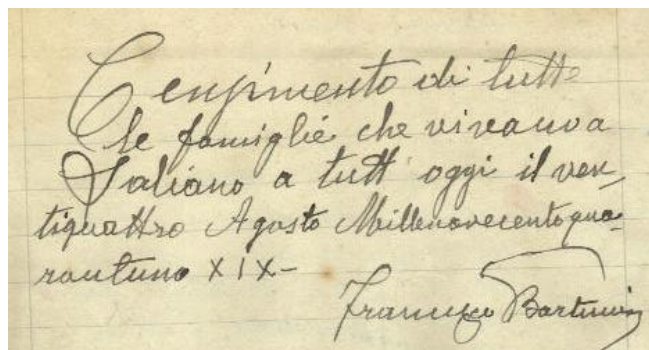 Cenzimento di tutte
le famiglie che vivano a
Saliano a tutt' oggi il ven-
tiquattro Agosto Millenovecentoqua-
rantuno XIX-
Francesco